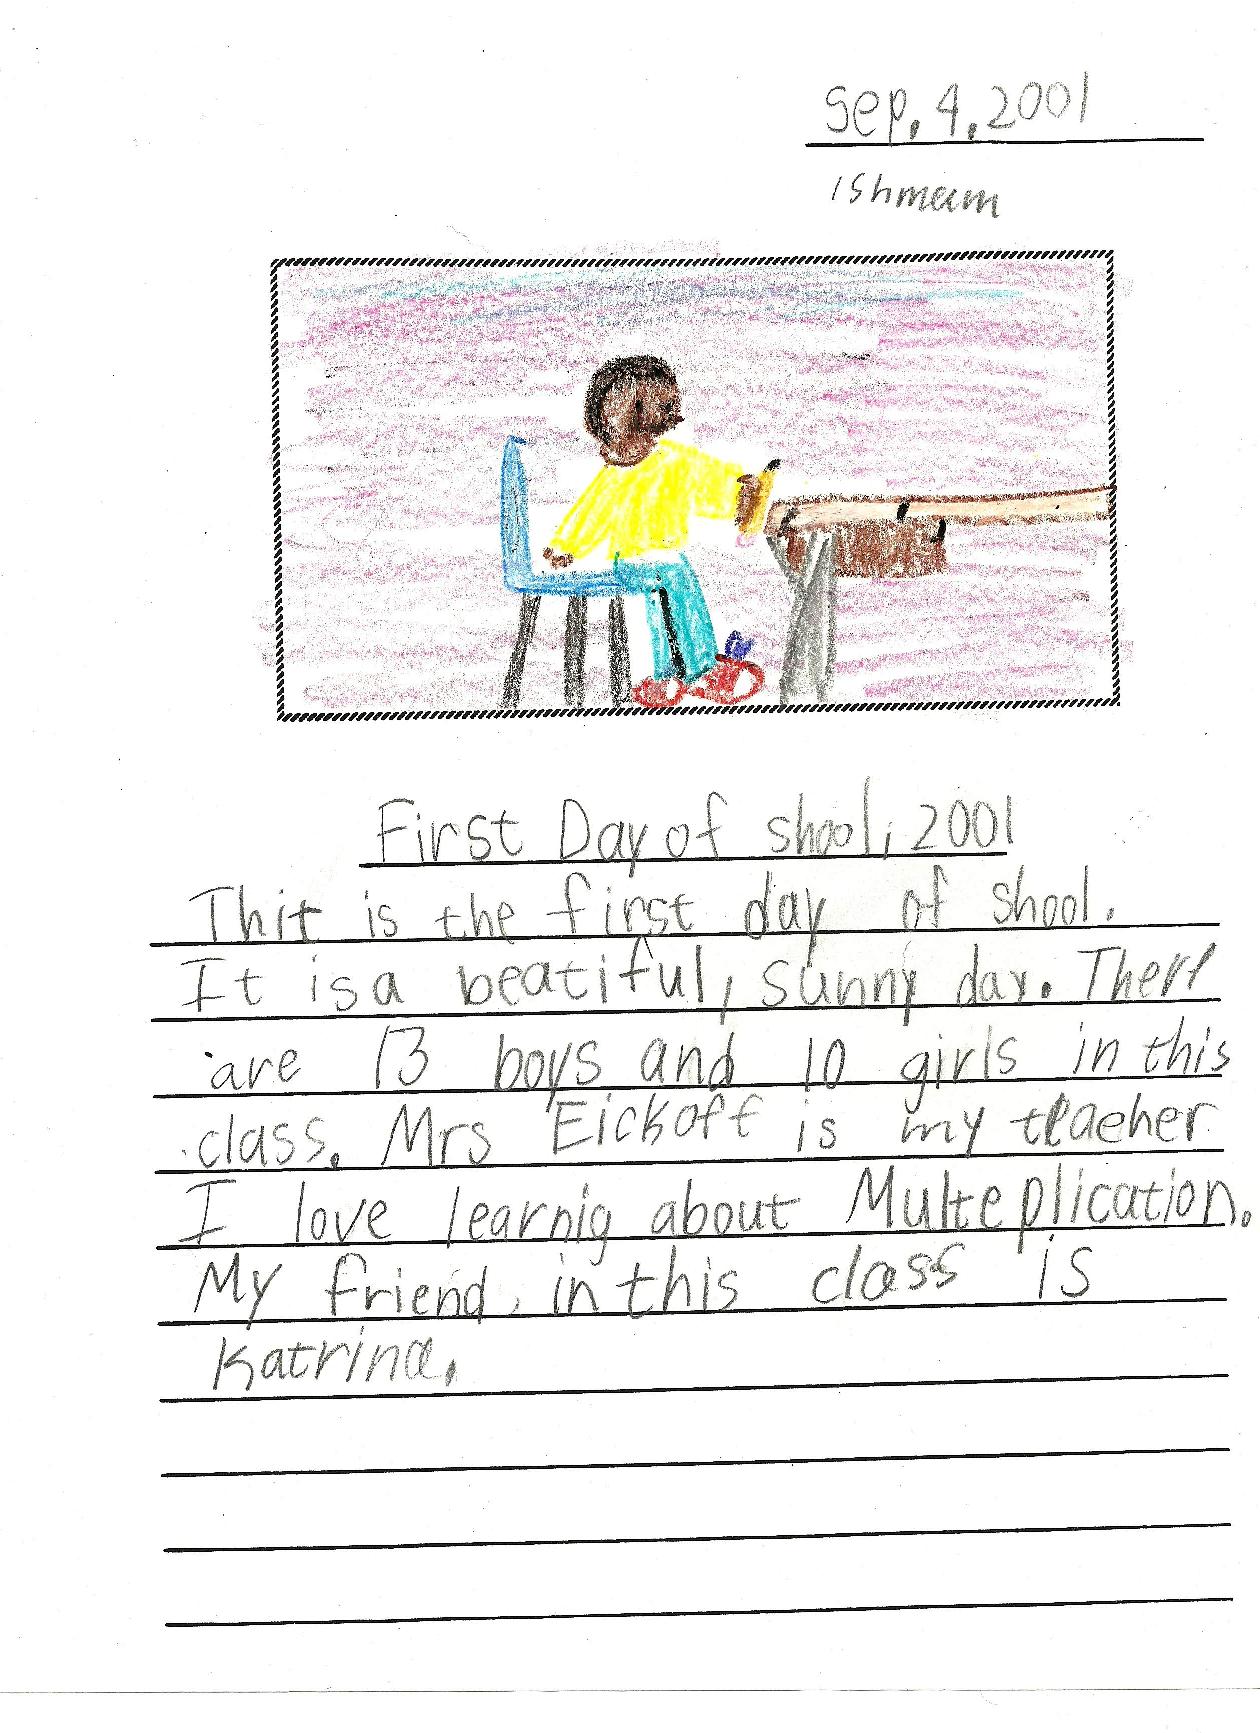 Sep. 4. 2001
Ishmam
First Day of shool, 2001
Thit is the first day of shool.
It is a beatiful, sunny day. There
are 13 boys and 10 girls in this
class. Mrs Eickoff is my teacher
I love learnig about Multeplication.
My friend in this class is
Katrina.